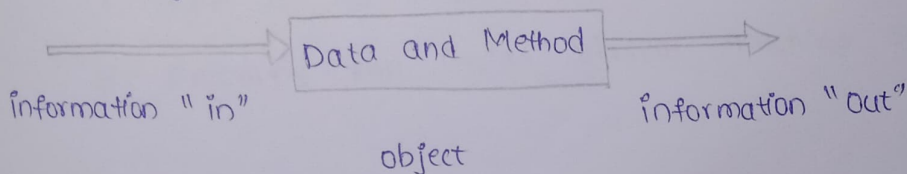 Data and Method
information "in"
information "out"
object